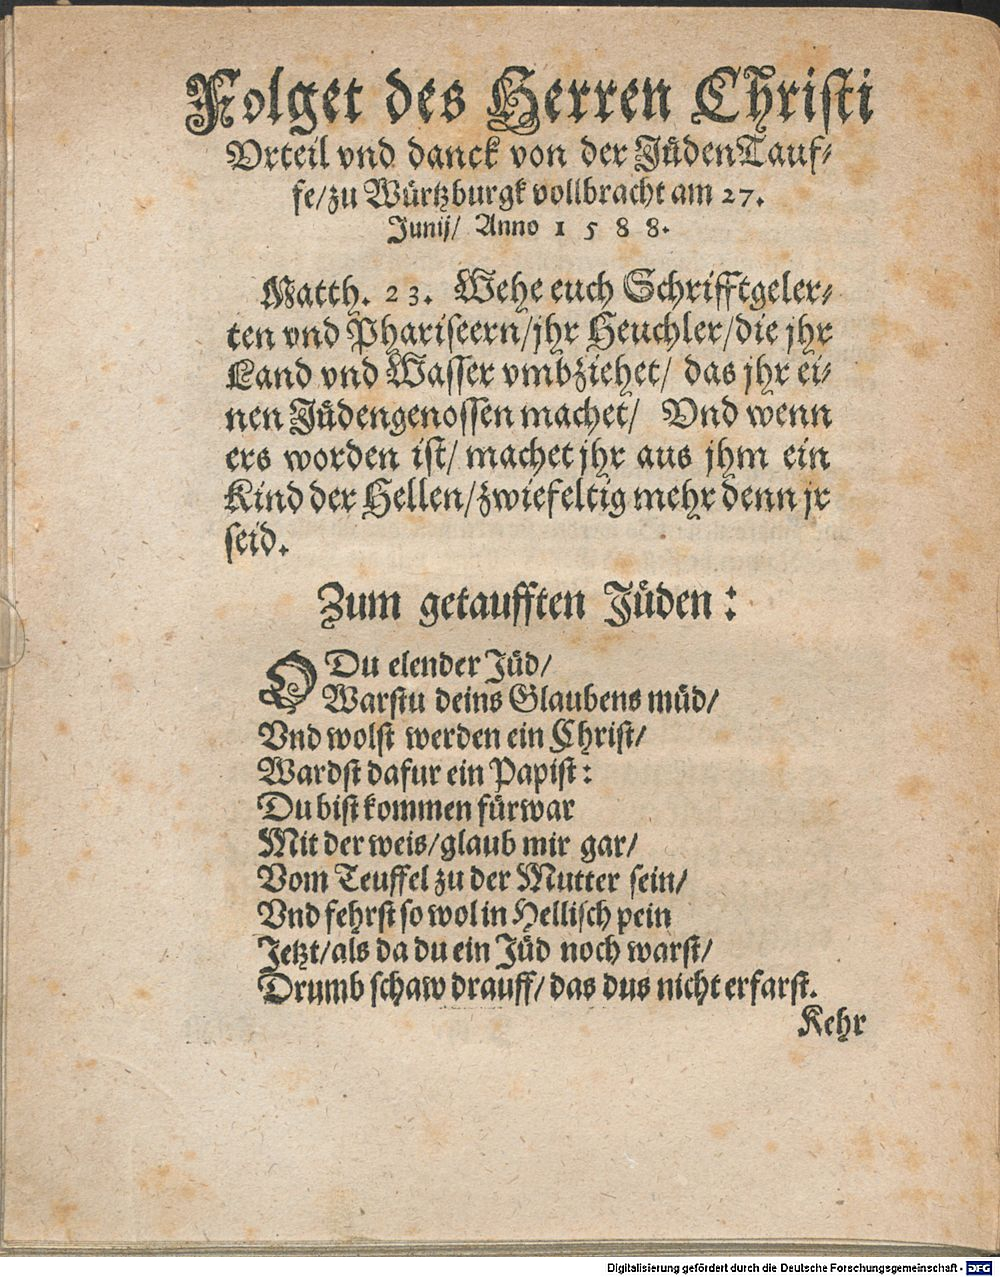 Folget des Herren Christi
Vrteil vnd danck von der Jüden Tauf-
fe/zu Würtzburgk vollbracht am 27.
Junij/ Anno 1 5 8 8.
Matth. 23. Wehe euch Schrifftgeler-
ten vnd Phariseern/jhr Heuchler/die jhr
Land vnd Wasser vmbziehet/ das jhr ei-
nen Jüdengenossen machet/ Vnd wenn
ers worden ist/ machet jhr aus jhm ein
Kind der Hellen/zwiefeltig mehr denn jr
seid.
Zum getaufften Jüden:
O Du elender Jüd/
Warstu deins Glaubens müd/
Vnd wolst werden ein Christ/
Wardst dafur ein Papist:
Du bist kommen fürwar
Mit der weis/glaub mir gar/
Vom Teuffel zu der Mutter sein/
Vnd fehrst so wol in Hellisch pein
Jetzt/als da du ein Jüd noch warst/
Drumb schaw drauff/das dus nicht erfarst.
Kehr
Digitalisierung gefördert durch die Deutsche Forschungsgemeinschaft - DFG